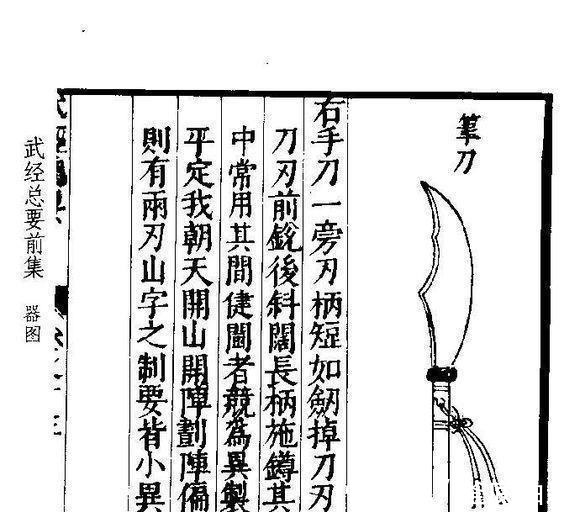 筆刀
右手刀一旁刃柄短如劒掉刀刃
刀刃前銳後斜闊長柄施鐏其
中常用其間健鬬者競為異製
平定我朝天開山開陣劃陣偏
則有兩刃山字之制要皆小異
武经总要前集 器图